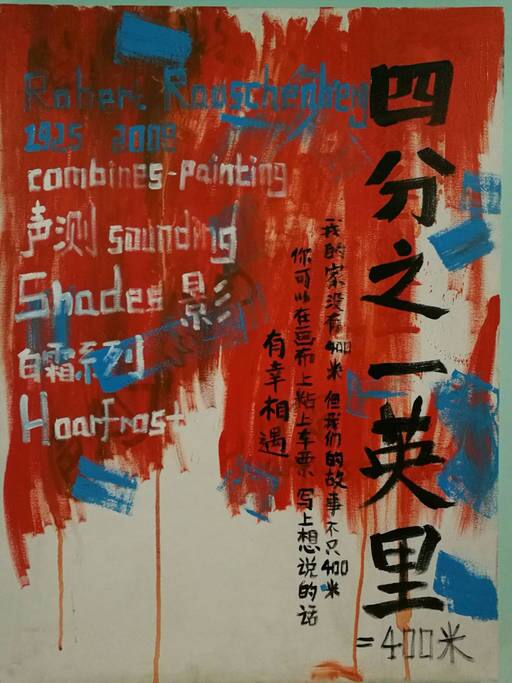 Robert Rauschenberg
1925 2008
combines-painting
声测 sounding
Shades 影
白霜系列
Hoarfrost
四分之一英里
=400米
我的家没有400米 但我们的故事不只400米
你可以在画布上粘上车票 写上想说的话
有幸相遇